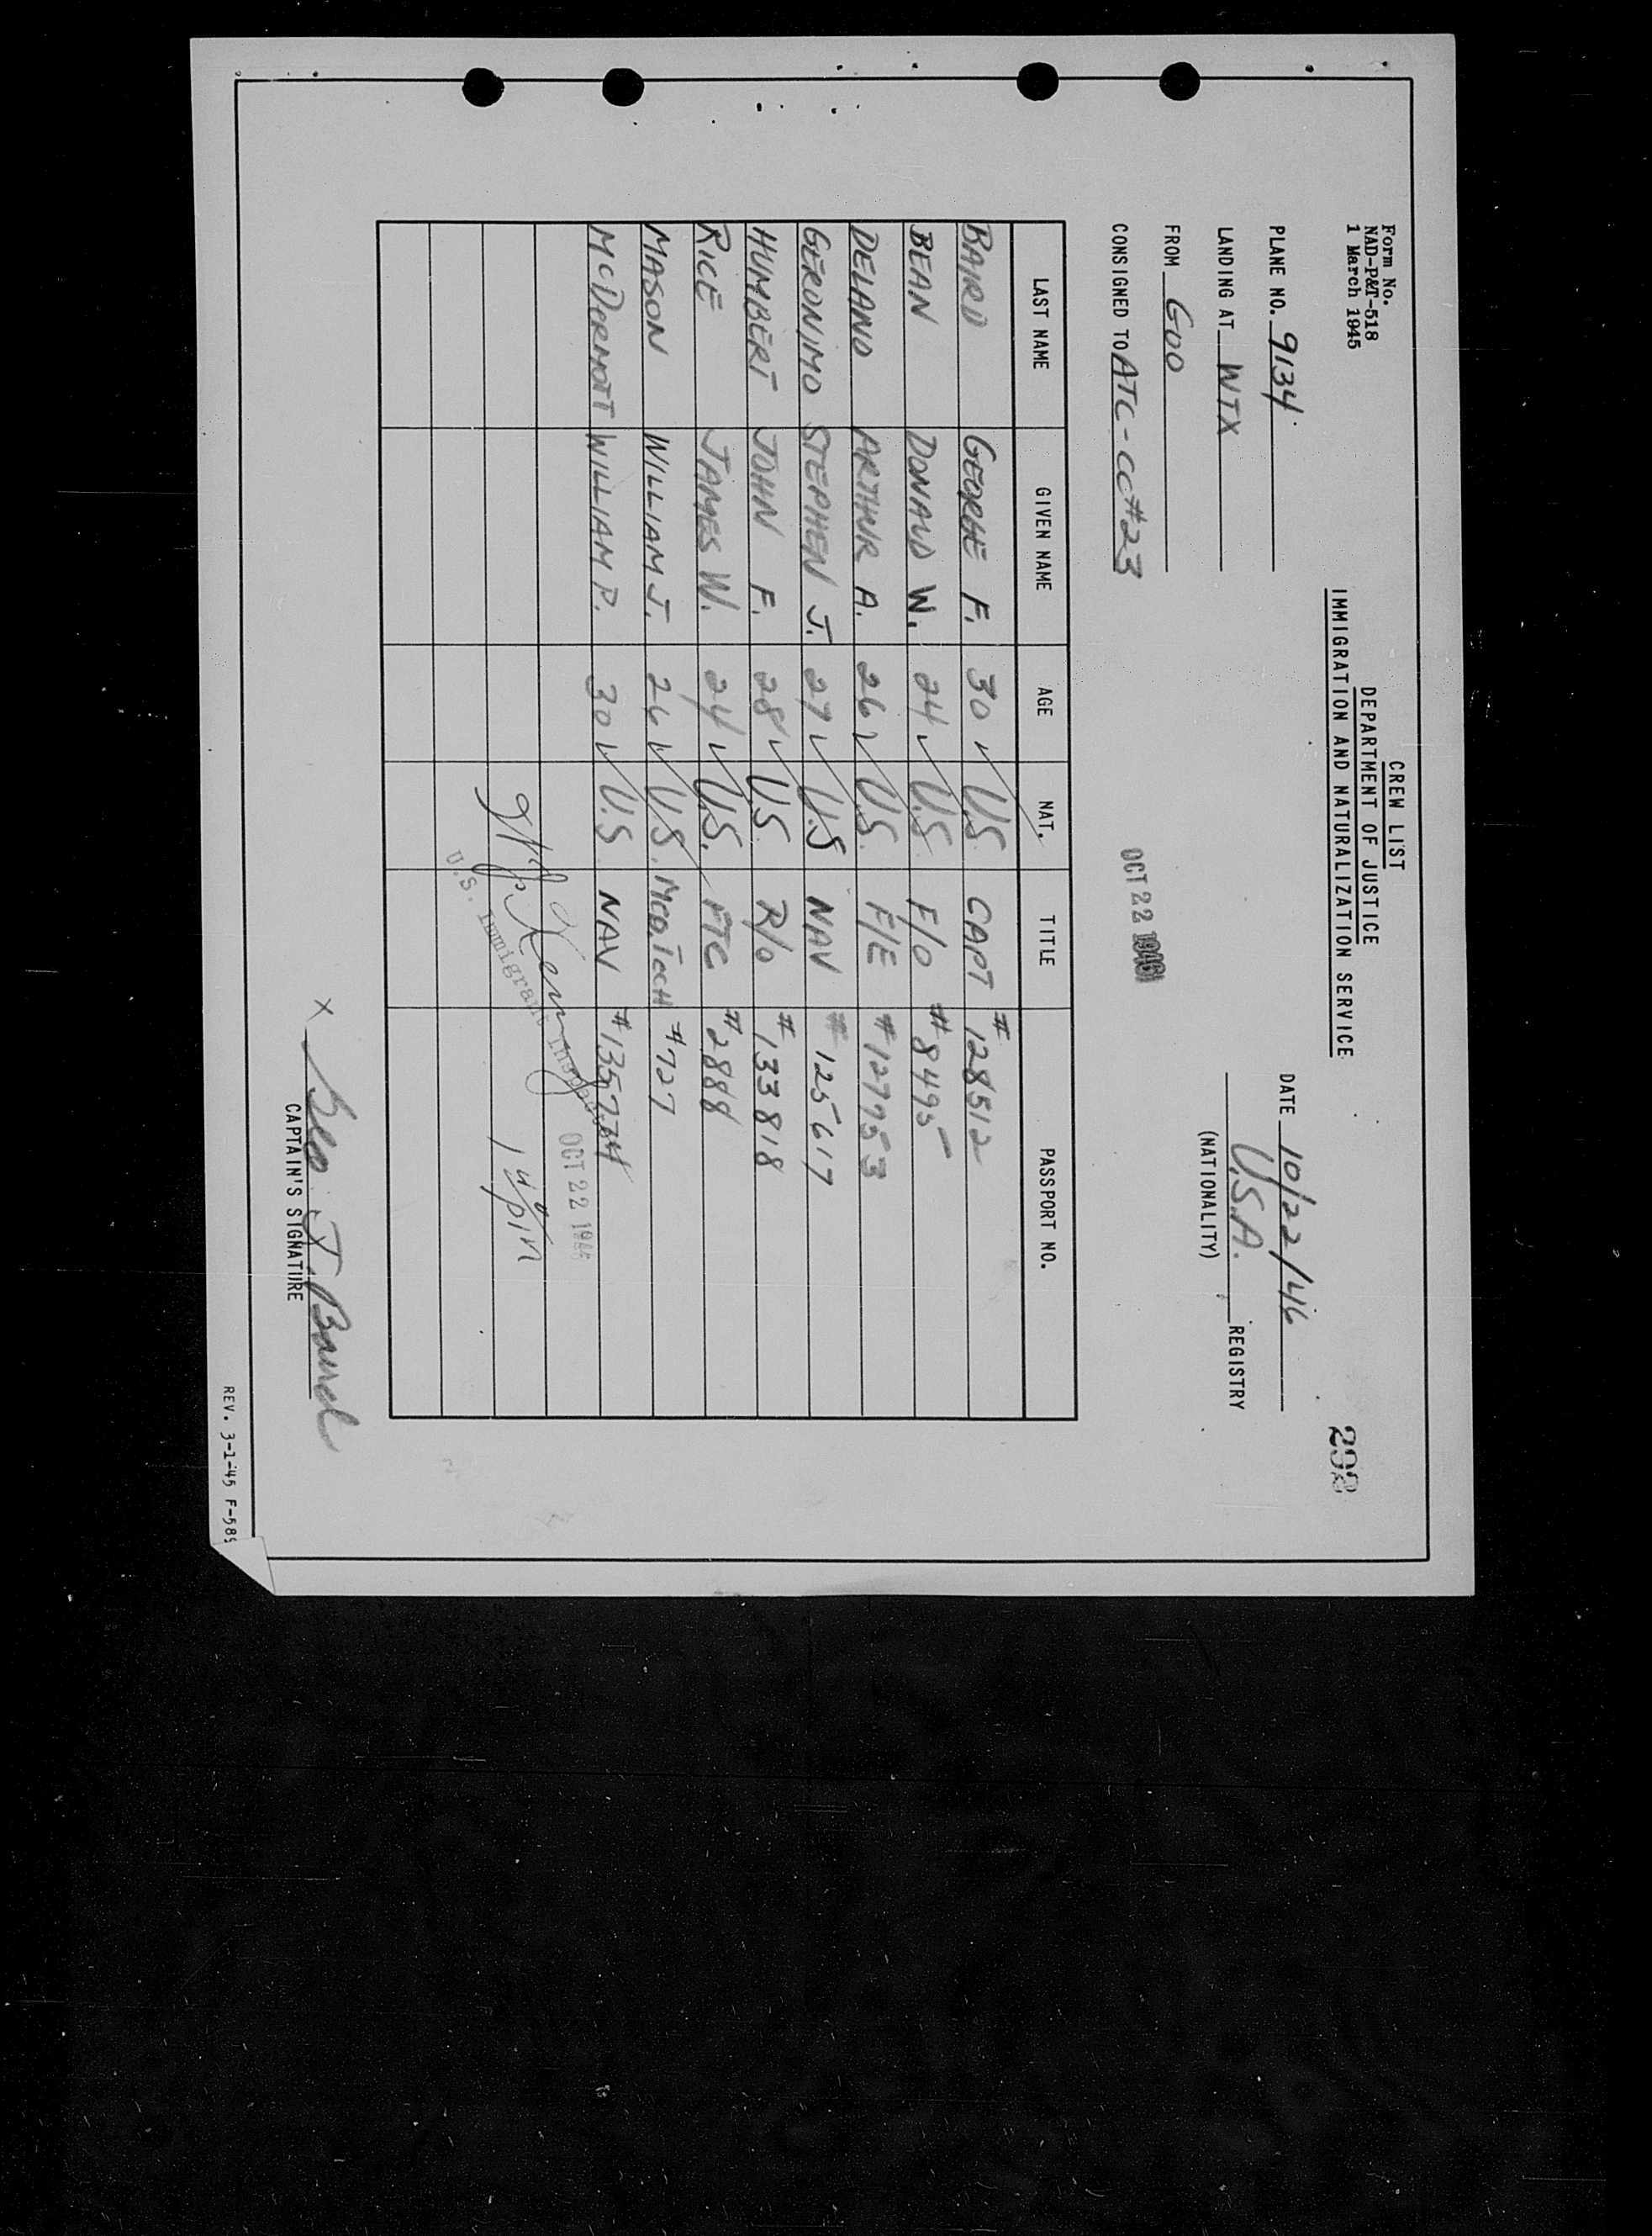 Form No.
NAD-P&T-518
1 March 1945
CREW LIST
DEPARTMENT OF JUSTICE
IMMIGRATION AND NATURALIZATION SERVICE
298
PLANE NO. 9134
DATE 10/22/46
LANDING AT WTX
U.S.A. REGISTRY
(NATIONALITY)
FROM GOO
CONSIGNED TO ATC-CC#23
OCT 22 1946
LAST NAME GIVEN NAME AGE NAT. TITLE PASSPORT NO.
BAIRD GEORGE F. 30 ✓ U.S CAPT #128512
BEAN DONALD W. 24 ✓ U.S. F/O #8495
DELANO ARTHUR A. 26 ✓ U.S. F/E #127953
GERONIMO STEPHEN J. 27 ✓ U.S NAV #125617
HUMBERT JOHN F. 28 ✓ U.S R/O #133818
RICE JAMES W. 24 ✓ U.S. FTC #2888
MASON WILLIAM J. 26 ✓ U.S. MED.TECH #727
MCDERMOTT WILLIAM P. 30 ✓ U.S NAV #135734
OCT 22 194
U.S. Immigrant Inspector
X Geo. F. Baird
CAPTAIN'S SIGNATURE
REV. 3-1-45 F-585